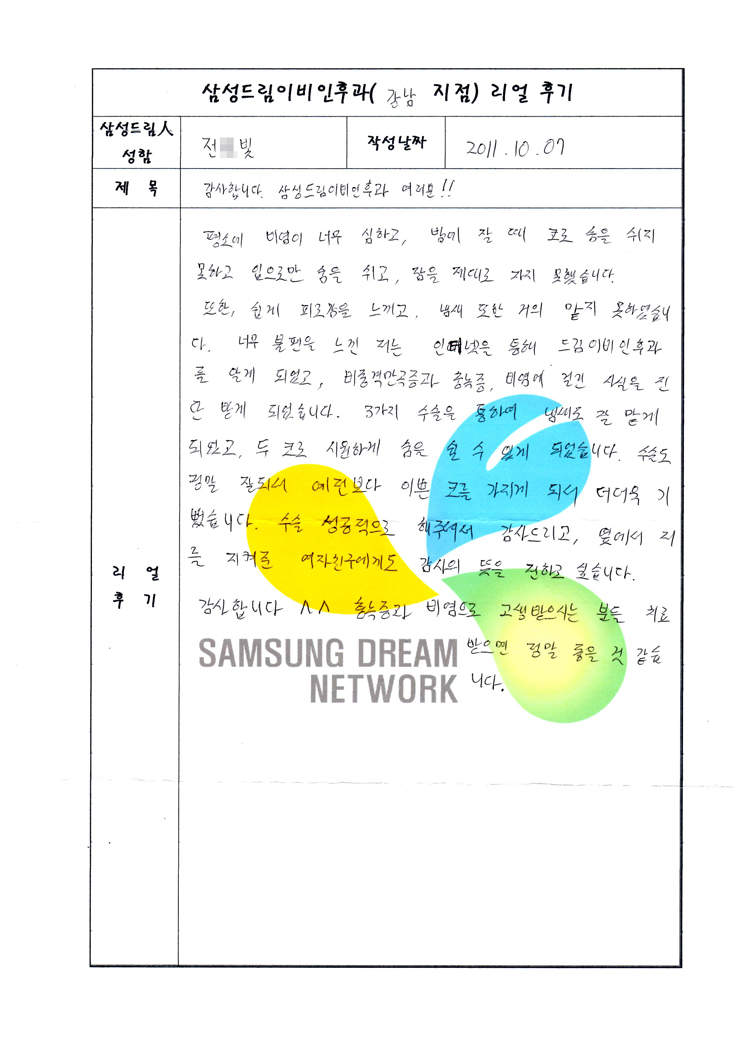 삼성드림이비인후과( 강남 지점) 리얼 후기
삼성드림人
성함
전 빛
작성날짜
2011.10.07
제 목
감사합니다. 삼성드림이비인후과 여러분!!
리 얼
후 기
평소에 비염이 너무 심하고, 밤에 잘 때 코로 숨을 쉬지
못하고 입으로만 숨을 쉬고, 잠을 제대로 자지 못했습니다.
또한, 쉽게 피로감을 느끼고, 냄새 또한 거의 맡지 못하였습니
다. 너무 불편을 느낀 저는 인터넷을 통해 드림이비인후과
를 알게 되었고, 비중격만곡증과 축농증, 비염에 걸린 사실을 진
단 받게 되었습니다. 3가지 수술을 통하여 냄새도 잘 맡게
되었고, 두 코로 시원하게 숨을 쉴 수 있게 되었습니다. 수술도
정말 잘되서 예전보다 이쁜 코를 가지게 되서 더더욱 기
뻤습니다. 수술 성공적으로 해주셔서 감사드리고, 옆에서 저
를 지켜준 여자친구에게도 감사의 뜻을 전하고 싶습니다.
감사합니다 ^^ 축농증과 비염으로 고생받으시는 분들 치료
받으면 정말 좋을 것 같습
니다.
SAMSUNG DREAM
NETWORK